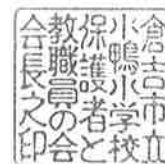 倉吉市立
小鴨小学校
保護者と
教職員の会
会長之印